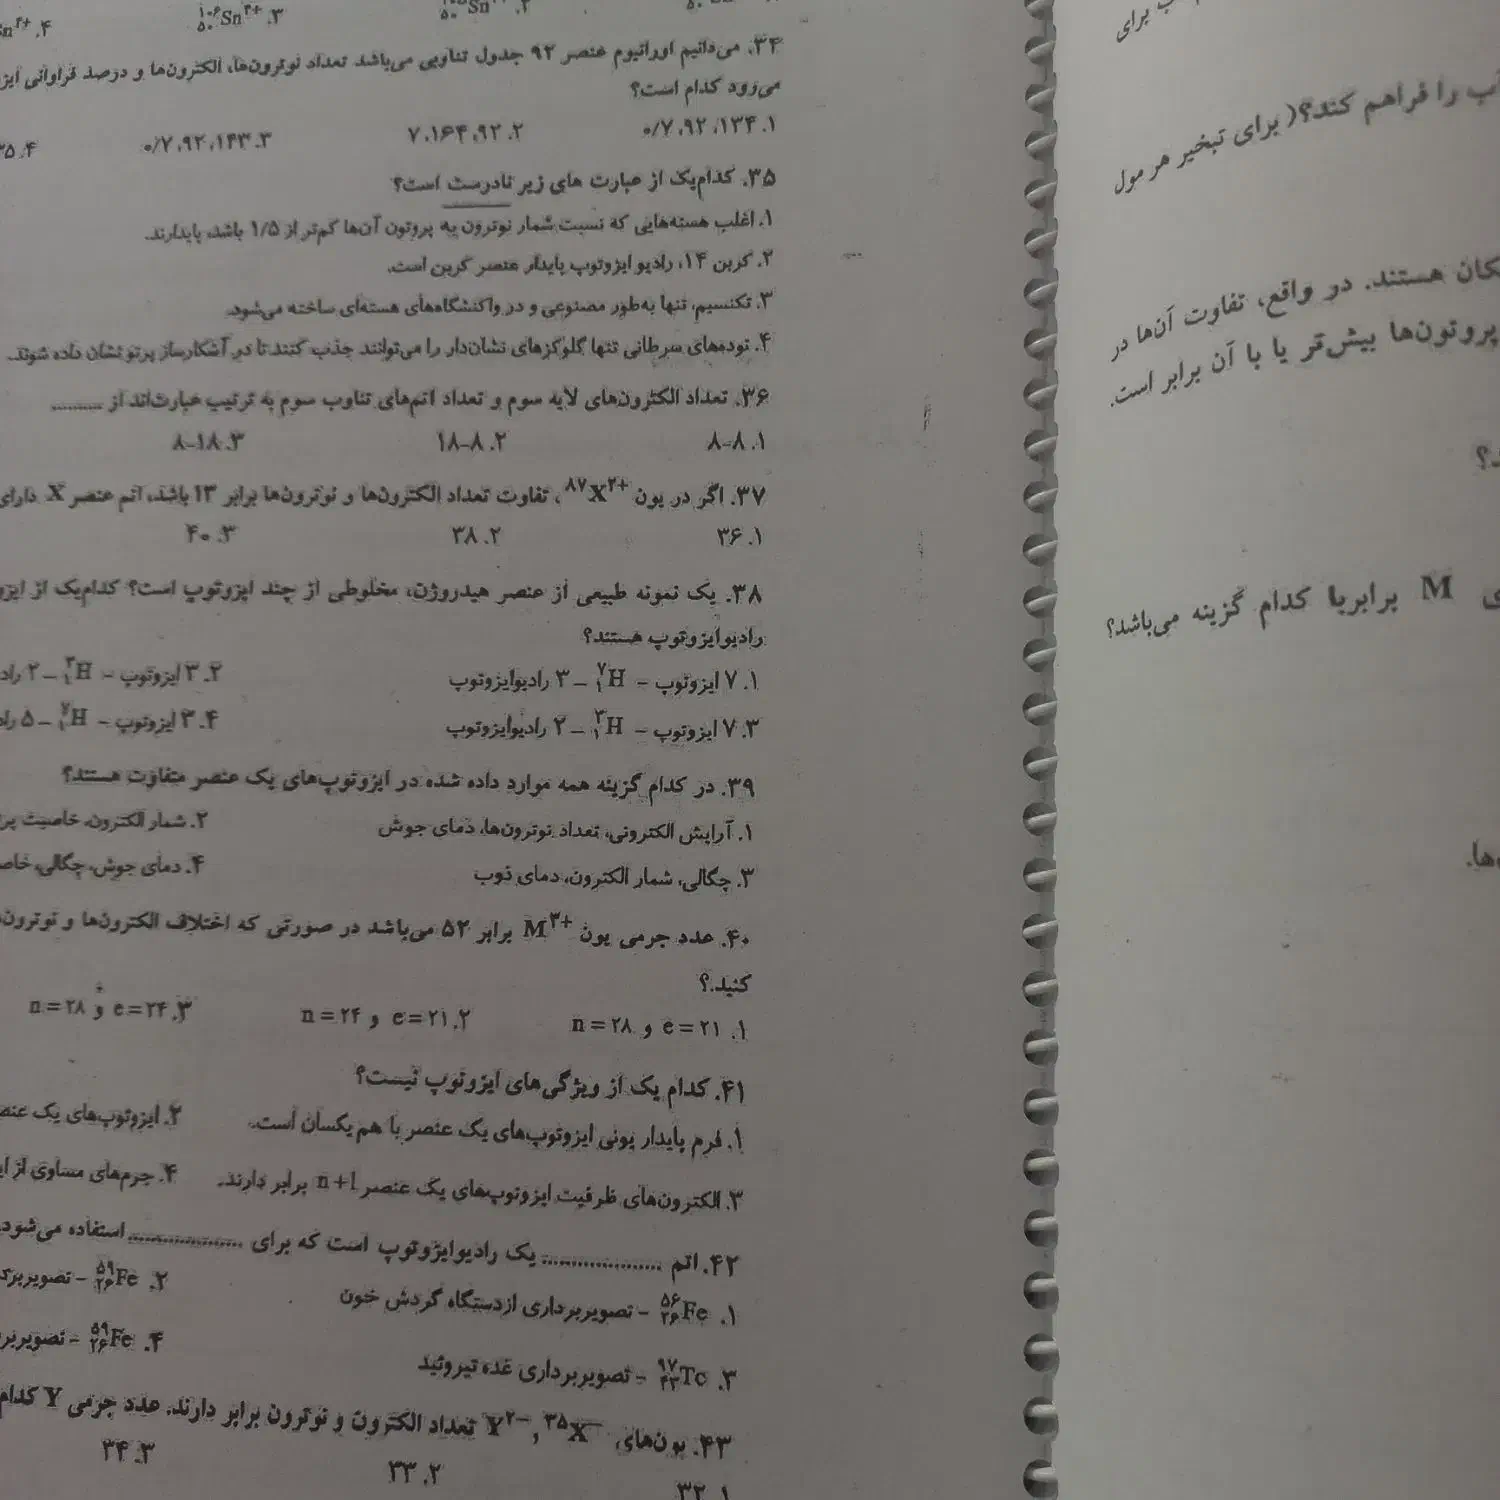 ۳. ¹⁰⁶₅₀Sn⁴⁺
۳۴. می‌دانیم اورانیوم عنصر ۹۲ جدول تناوبی می‌باشد تعداد نوترون‌ها، الکترون‌ها و درصد فراوانی
می‌رود کدام است؟
۱. ۱۳۴، ۹۲، ۰/۷ ۲. ۹۲، ۱۶۴، ۷ ۳. ۱۴۳، ۹۲، ۰/۷ ۴.
۳۵. کدام‌یک از عبارت های زیر نادرست است؟
۱. اغلب هسته‌هایی که نسبت شمار نوترون به پروتون آن‌ها کم‌تر از ۱/۵ باشد، پایدارند.
۲. کربن ۱۴، رادیو ایزوتوپ پایدار عنصر کربن است.
۳. تکنسیم، تنها به‌طور مصنوعی و در واکنشگاه‌های هسته‌ای ساخته می‌شود.
۴. توده‌های سرطانی تنها گلوکزهای نشان‌دار را می‌توانند جذب کنند تا در آشکارساز پرتو نشان داده شوند.
۳۶. تعداد الکترون‌های لایه سوم و تعداد اتم‌های تناوب سوم به ترتیب عبارت‌اند از ..........
۱. ۸-۸ ۲. ۸-۱۸ ۳. ۱۸-۸
۳۷. اگر در یون ⁸⁷X²⁺، تفاوت تعداد الکترون‌ها و نوترون‌ها برابر ۱۳ باشد، اتم عنصر X دارای
۱. ۳۶ ۲. ۳۸ ۳. ۴۰
۳۸. یک نمونه طبیعی از عنصر هیدروژن، مخلوطی از چند ایزوتوپ است؟ کدام‌یک از
رادیوایزوتوپ هستند؟
۱. ۷ ایزوتوپ – ⁷₁H – ۳ رادیوایزوتوپ ۲. ۳ ایزوتوپ – ³₁H – ۲
۳. ۷ ایزوتوپ – ³₁H – ۲ رادیوایزوتوپ ۴. ۳ ایزوتوپ – ⁷₁H – ۵
۳۹. در کدام گزینه همه موارد داده شده در ایزوتوپ‌های یک عنصر متفاوت هستند؟
۱. آرایش الکترونی، تعداد نوترون‌ها، دمای جوش ۲. شمار الکترون، خاصیت
۳. چگالی، شمار الکترون، دمای ذوب ۴. دمای جوش، چگالی،
۴۰. عدد جرمی یون M³⁺ برابر ۵۲ می‌باشد در صورتی که اختلاف الکترون‌ها و
کنید.؟
۱. e = ۲۱ و n = ۲۸ ۲. e = ۲۱ و n = ۲۴ ۳. e = ۲۴ و n = ۲۸
۴۱. کدام یک از ویژگی‌های ایزوتوپ نیست؟
۱. فرم پایدار یونی ایزوتوپ‌های یک عنصر با هم یکسان است. ۲. ایزوتوپ‌های یک
۳. الکترون‌های ظرفیت ایزوتوپ‌های یک عنصر n+1 برابر دارند. ۴. جرم‌های مساوی از
۴۲. اتم .................... یک رادیوایزوتوپ است که برای .................... استفاده می‌شود.
۱. ⁵⁶₂₆Fe – تصویربرداری ازدستگاه گردش خون ۲. ⁵⁹₂₆Fe –
۳. ⁹⁷₄₳Tc – تصویربرداری غده تیروئید ۴. ⁵⁹₂₆Fe –
۴۳. یون‌های ³⁵X⁻ , Y²⁻ تعداد الکترون و نوترون برابر دارند. عدد جرمی Y کدام
۱. ۳۲ ۲. ۳۳ ۳. ۳۴
برای
را فراهم کند؟( برای تبخیر هر مول
هستند. در واقع، تفاوت آن‌ها در
پروتون‌ها بیش‌تر یا با آن برابر است.
M برابربا کدام گزینه می‌باشد؟